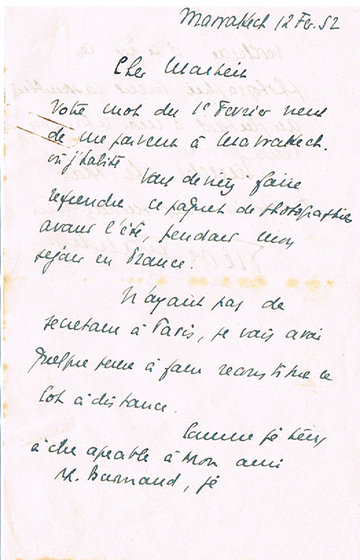 Marrakech 12 Fev. 52
Cher Monsieur
Votre mot du 1er Fevrier vient
de me parvenir à Marrakech.
où j'habite
Vous deviez faire
reprendre ce paquet de photographies
avant l'été, pendant mon
séjour en France.
N'ayant pas de
secretaire à Paris, je vais avoir
quelque peine à faire reconstituer ce
lot à distance.
Comme je tiens
à être agréable à mon ami
M. Barnaud, je